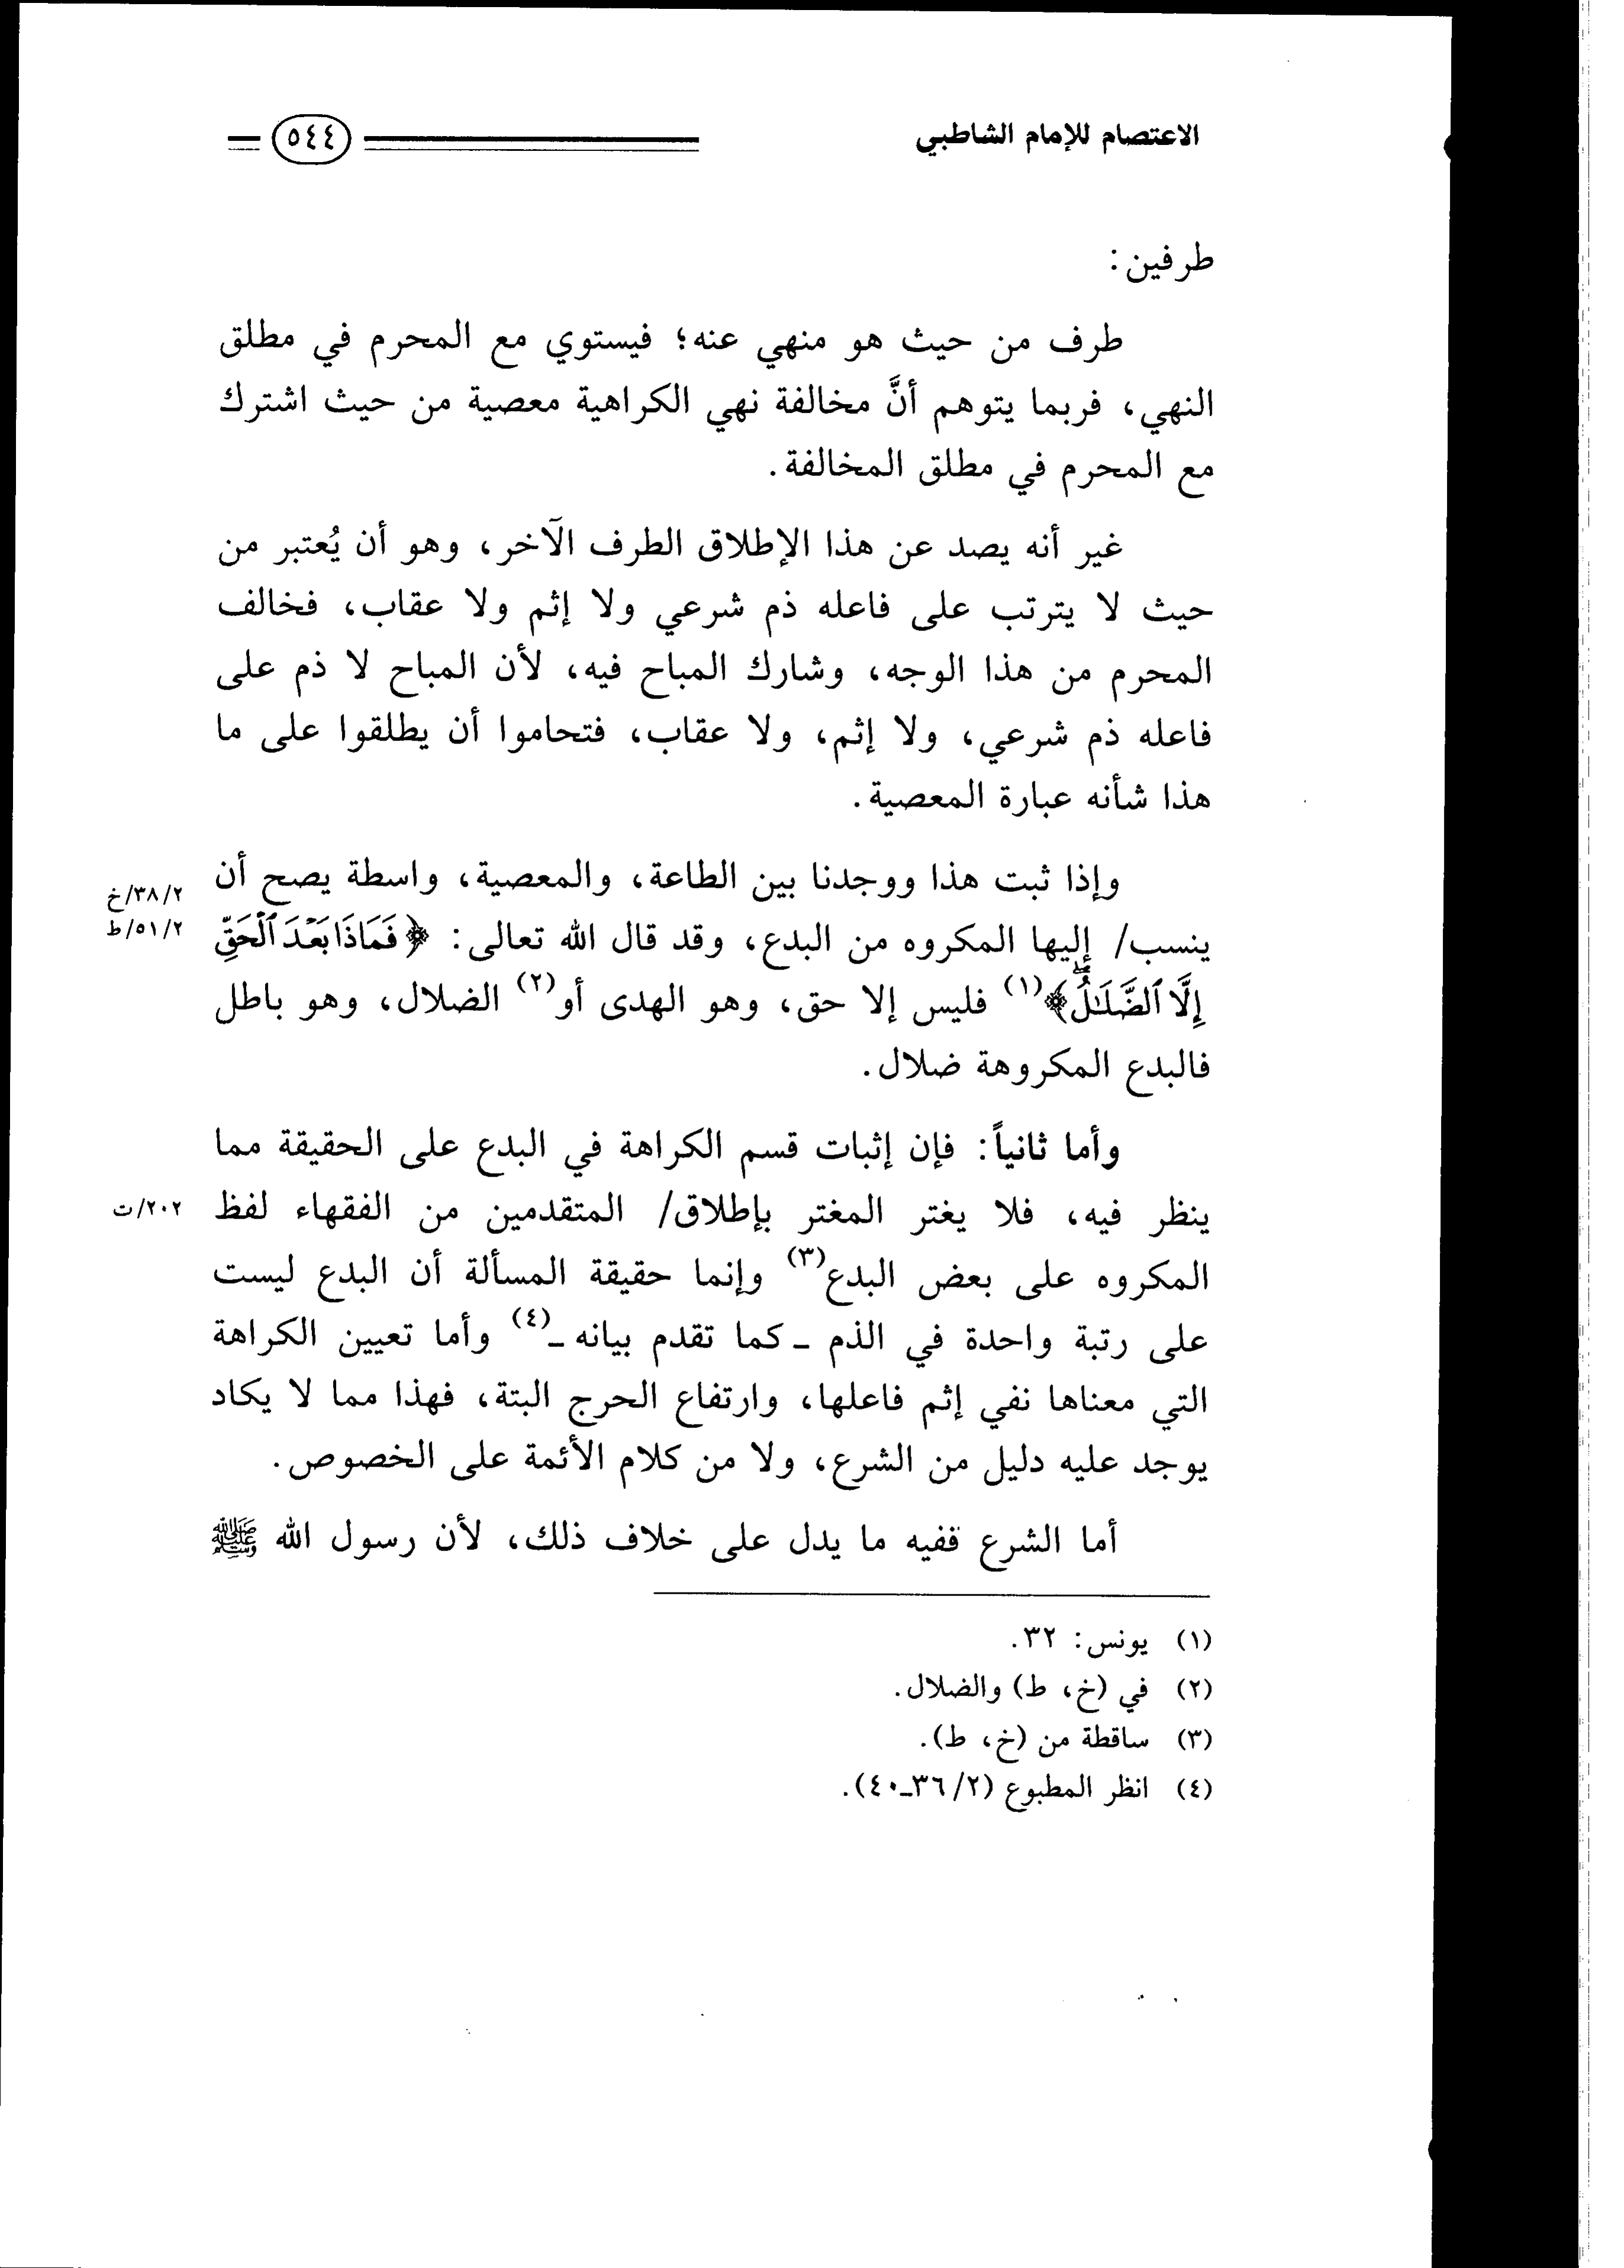 الاعتصام للإمام الشاطبي ٥٤٤
طرفين:
طرف من حيث هو منهي عنه؛ فيستوي مع المحرم في مطلق
النهي، فربما يتوهم أنَّ مخالفة نهي الكراهية معصية من حيث اشترك
مع المحرم في مطلق المخالفة.
غير أنه يصد عن هذا الإطلاق الطرف الآخر، وهو أن يُعتبر من
حيث لا يترتب على فاعله ذم شرعي ولا إثم ولا عقاب، فخالف
المحرم من هذا الوجه، وشارك المباح فيه، لأن المباح لا ذم على
فاعله ذم شرعي، ولا إثم، ولا عقاب، فتحاموا أن يطلقوا على ما
هذا شأنه عبارة المعصية.
وإذا ثبت هذا ووجدنا بين الطاعة، والمعصية، واسطة يصح أن
٣٨/٢/خ
ينسب/ إليها المكروه من البدع، وقد قال الله تعالى: ﴿فَمَاذَا بَعْدَ ٱلْحَقِّ
٥١/٢/ط
إِلَّا ٱلضَّلَـٰلُۖ﴾(١) فليس إلا حق، وهو الهدى أو(٢) الضلال، وهو باطل
فالبدع المكروهة ضلال.
وأما ثانياً: فإن إثبات قسم الكراهة في البدع على الحقيقة مما
ينظر فيه، فلا يغتر المغتر بإطلاق/ المتقدمين من الفقهاء لفظ
٢٠٢/ت
المكروه على بعض البدع(٣) وإنما حقيقة المسألة أن البدع ليست
على رتبة واحدة في الذم ـ كما تقدم بيانه ـ(٤) وأما تعيين الكراهة
التي معناها نفي إثم فاعلها، وارتفاع الحرج البتة، فهذا مما لا يكاد
يوجد عليه دليل من الشرع، ولا من كلام الأئمة على الخصوص.
أما الشرع ففيه ما يدل على خلاف ذلك، لأن رسول الله ﷺ
(١) يونس: ٣٢.
(٢) في (خ، ط) والضلال.
(٣) ساقطة من (خ، ط).
(٤) انظر المطبوع (٢/ ٣٦ـ٤٠).